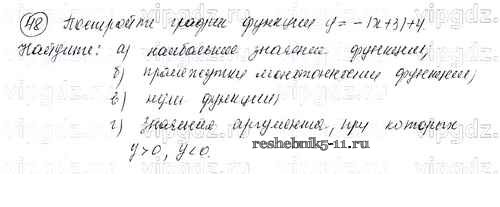 48 Постройте график функции y = - |x+3|+4.
Найдите: а) наибольшее значение функции;
б) промежутки монотонности функции;
в) нули функции;
г) значения аргумента, при которых
y>0, y<0.
reshebnik5-11.ru
vipgdz.ru